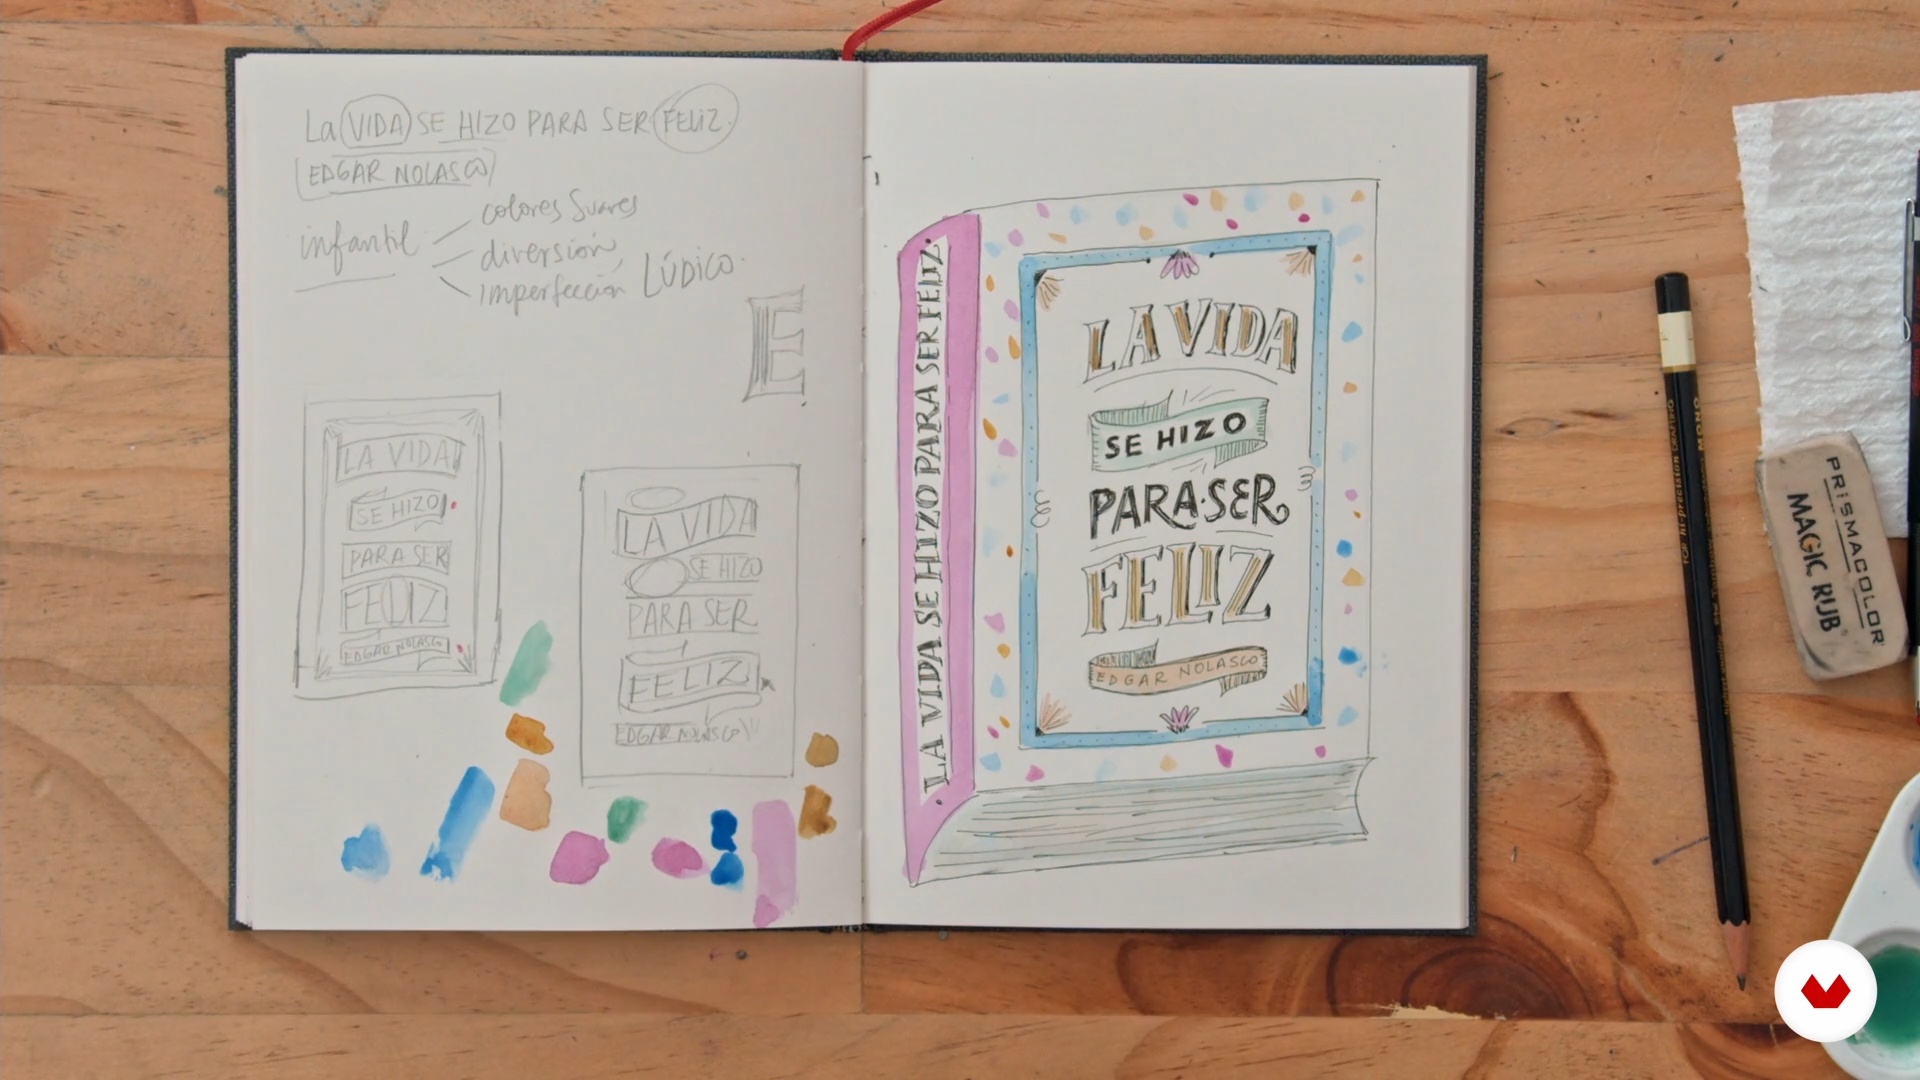 La VIDA SE HIZO PARA SER FELIZ.
EDGAR NOLASCO
infantil
colores Suaves
diversión,
imperfección
LÚDICO.
E
LA VIDA
SE HIZO
PARA SER
FELIZ
EDGAR NOLASCO
LA VIDA
SE HIZO
PARA SER
FELIZ
EDGAR NOLASCO
LA VIDA SE HIZO PARA SER FELIZ.
LA VIDA
SE HIZO
PARA·SER
FELIZ
EDGAR NOLASCO
MONO
PRISMACOLOR
MAGIC RUB